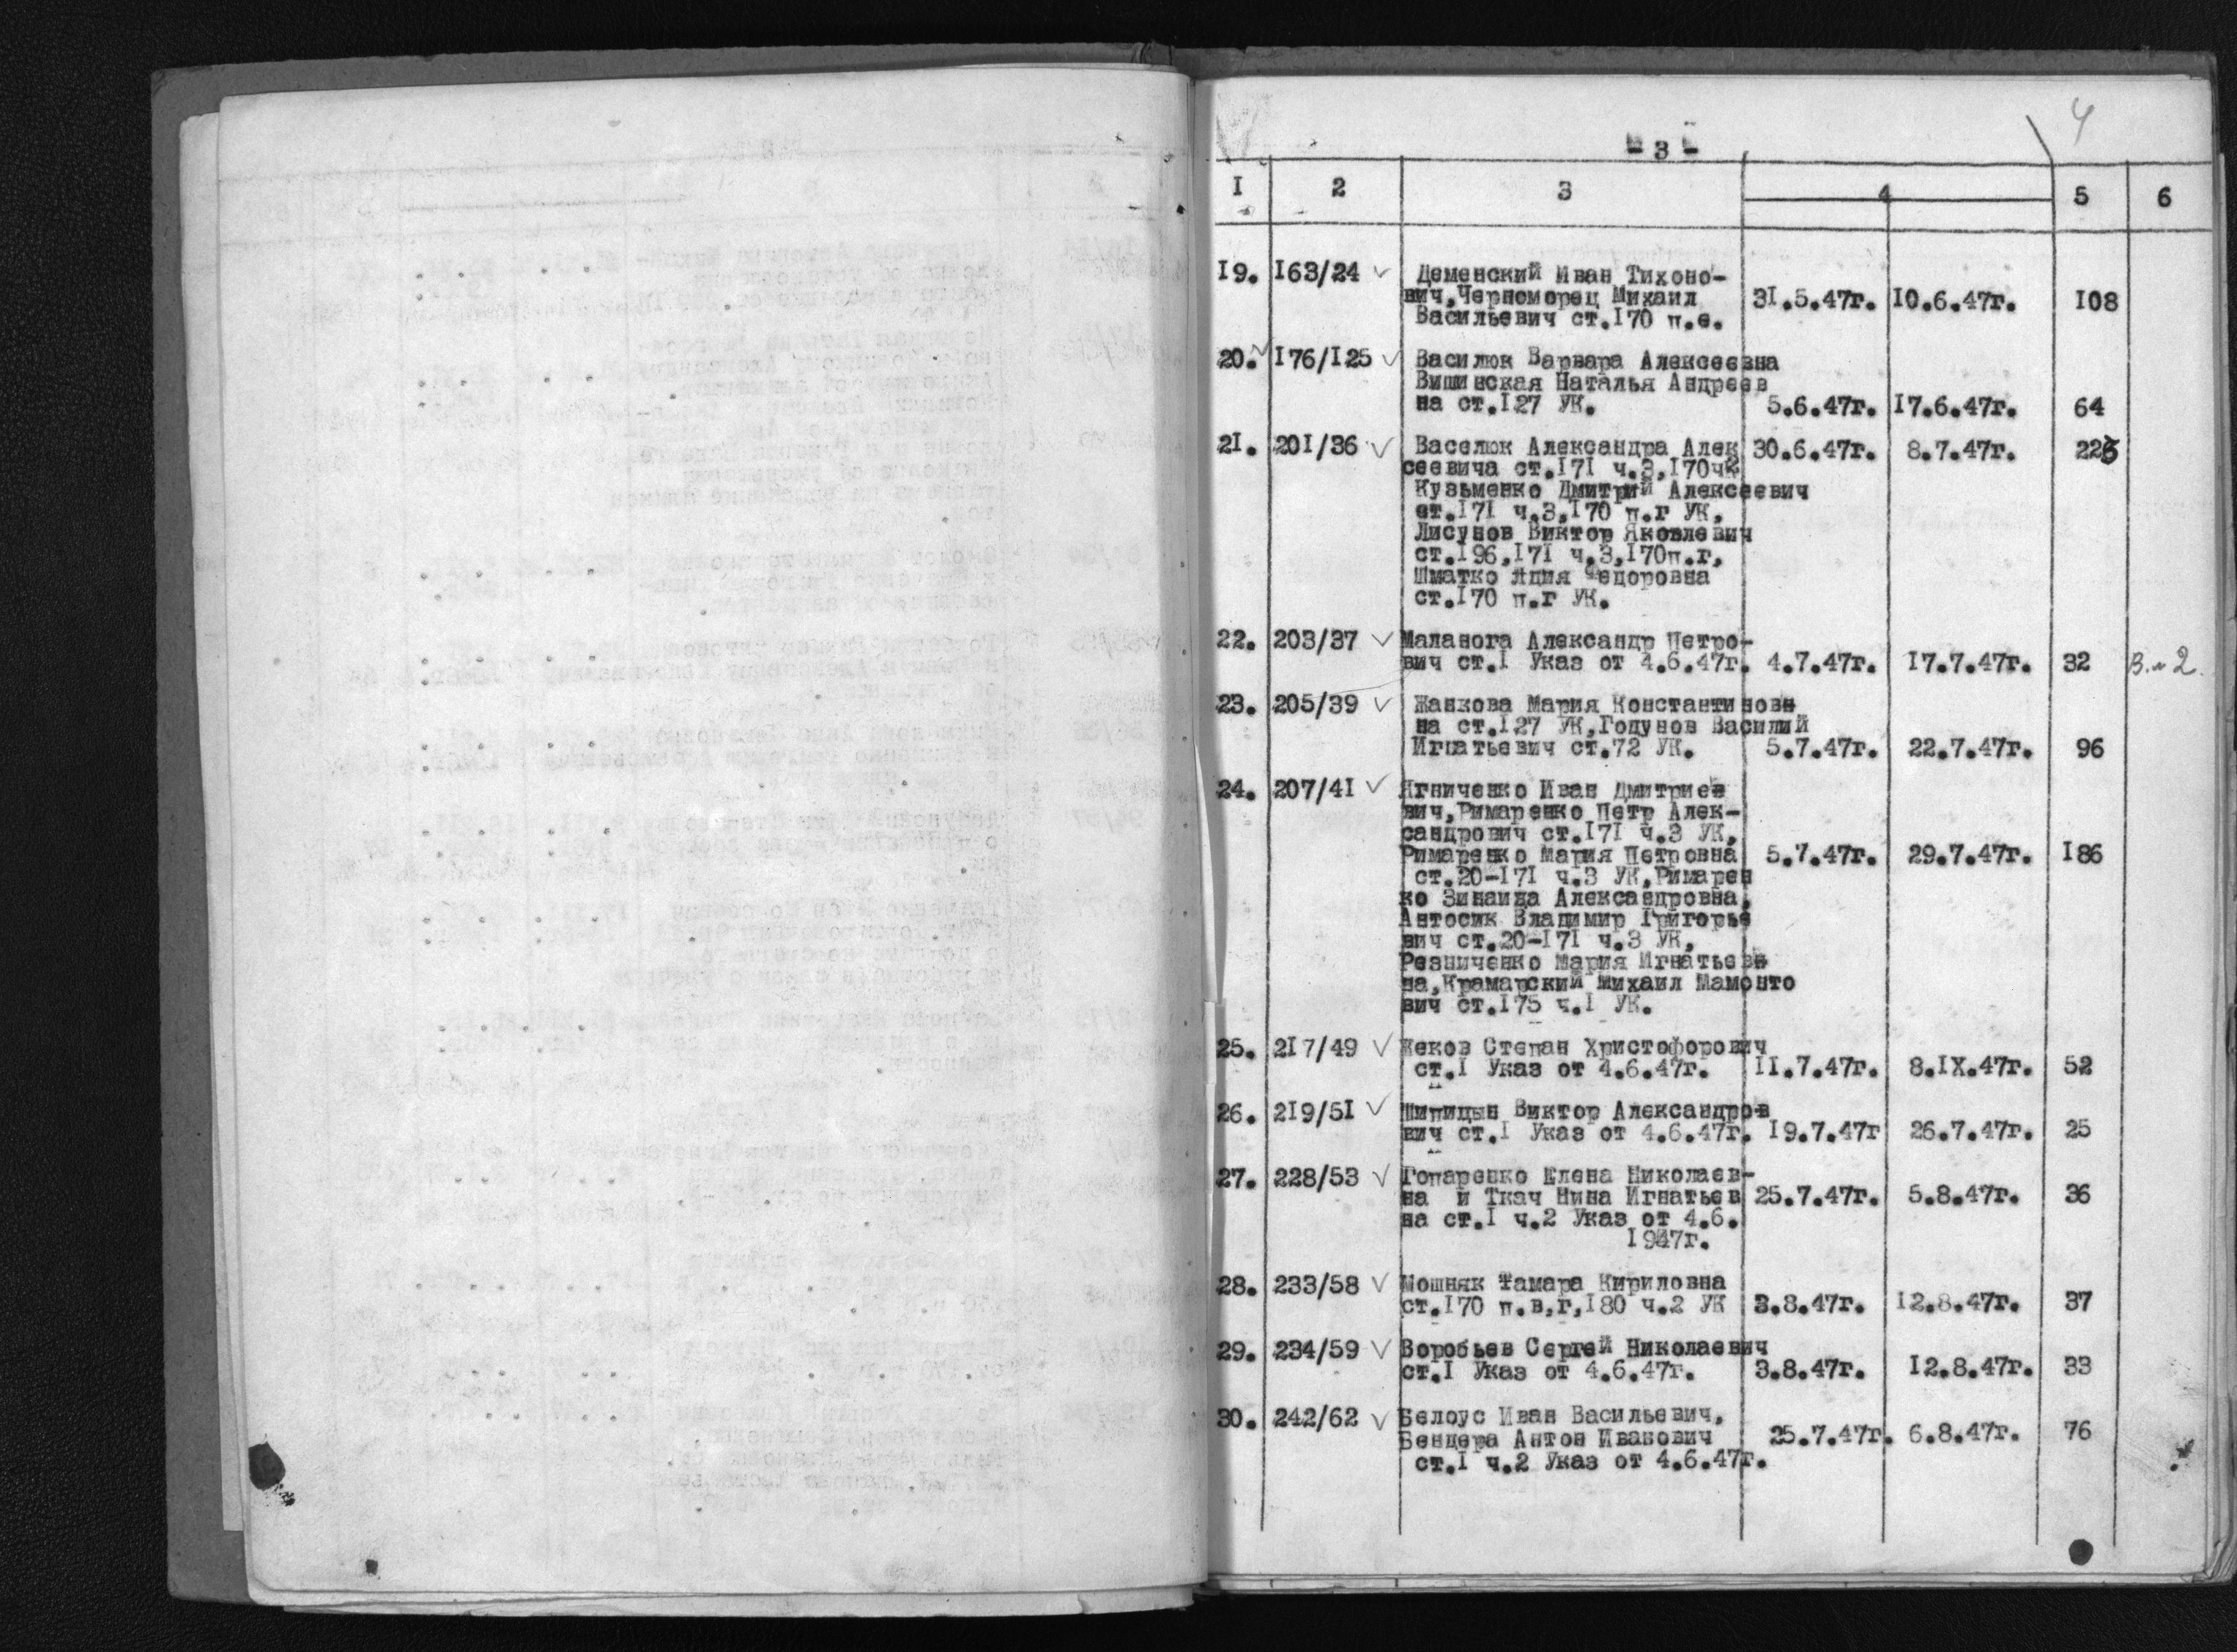 4
- 3 -
I 2 3 4 5 6
19. 163/24 Деменский Иван Тихоно-
вич,Черноморец Михаил 31.5.47г. 10.6.47г. 108
Васильевич ст.170 п.е.
20. 176/125 Василюк Варвара Алексеевна
Вишинская Наталья Андреев
на ст.127 УК. 5.6.47г. 17.6.47г. 64
21. 201/36 Васелюк Александра Алек 30.6.47г. 8.7.47г. 225
сеевича ст.171 ч.3,170ч2
Кузьменко Дмитрий Алексеевич
ст.171 ч.3,170 п.г УК,
Лисунов Виктор Яковлевич
ст.196,171 ч.3,170п.г,
Шматко Лидия Федоровна
ст.170 п.г УК.
22. 203/37 Маланога Александр Петро-
вич ст.1 Указ от 4.6.47г. 4.7.47г. 17.7.47г. 32
23. 205/39 Жанкова Мария Константиновн
на ст.127 УК,Годунов Василий
Игнатьевич ст.72 УК. 5.7.47г. 22.7.47г. 96
24. 207/41 Ягниченко Иван Дмитриев
вич,Римаренко Петр Алек-
сандрович ст.171 ч.3 УК,
Римаренко Мария Петровна 5.7.47г. 29.7.47г. 186
ст.20-171 ч.3 УК,Римарен
ко Зинаида Александровна,
Антосик Владимир Григорье
вич ст.20-171 ч.3 УК,
Резниченко Мария Игнатьевн
на,Крамарский Михаил Мамонто
вич ст.175 ч.1 УК.
25. 217/49 Жеков Степан Христофорович
ст.1 Указ от 4.6.47г. 11.7.47г. 8.IX.47г. 52
26. 219/51 Шипицын Виктор Александров
вич ст.1 Указ от 4.6.47г. 19.7.47г 26.7.47г. 25
27. 228/53 Гопаренко Елена Николаев-
на и Ткач Нина Игнатьев 25.7.47г. 5.8.47г. 36
на ст.1 ч.2 Указ от 4.6.
1947г.
28. 233/58 Мошняк Тамара Кириловна
ст.170 п.в,г,180 ч.2 УК 3.8.47г. 12.8.47г. 37
29. 234/59 Воробьев Сергей Николаевич
ст.1 Указ от 4.6.47г. 3.8.47г. 12.8.47г. 33
30. 242/62 Белоус Иван Васильевич,
Бендера Антон Иванович 25.7.47г. 6.8.47г. 76
ст.1 ч.2 Указ от 4.6.47г.